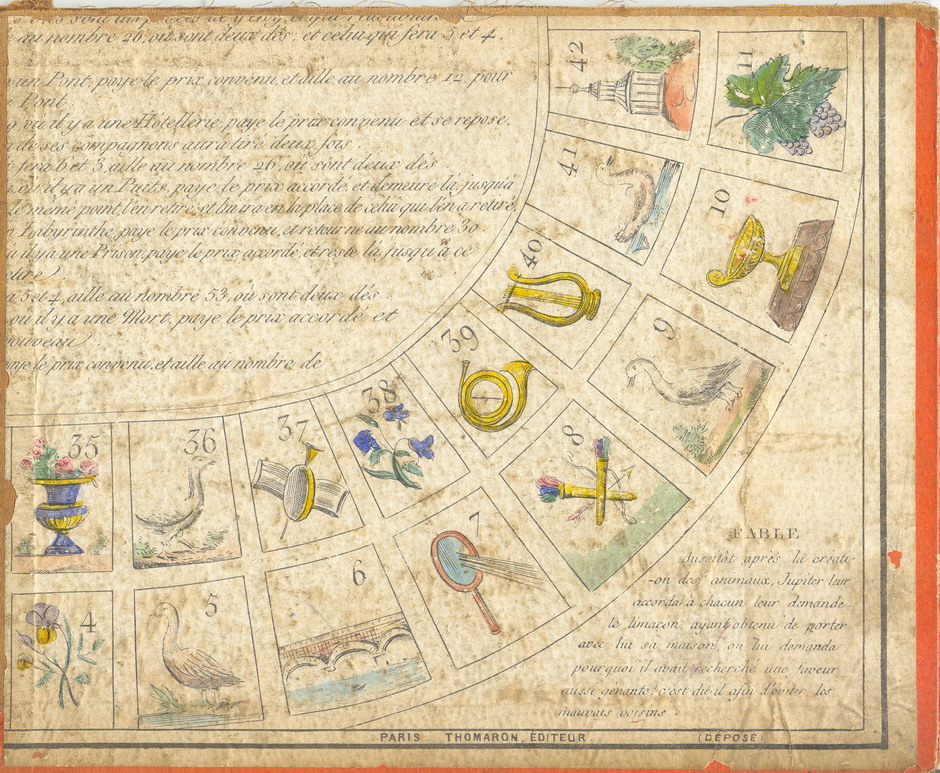 au nombre 26, où sont deux dés, et celui qui fera 5 et 4.
un Pont, paye le prix convenu, et aille au nombre 12, pour
Pont
où il y a une Hotellerie, paye le prix convenu et se repose,
de ses compagnons aura tiré deux fois
fera 6 et 3, aille au nombre 26, où sont deux dés
où il y a un Puits, paye le prix accorde, et demeure là jusqu'à
le même point l'en retire, et lui ira en la place de celui qui l'en a retiré.
Labyrinthe, paye le prix convenu, et retourne au nombre 30
il y a une Prison, paye le prix acordé, et reste là jusqu'à ce
5 et 4, aille au nombre 53, où sont deux dés.
où il y a une Mort, paye le prix accordé et
nouveau
le prix convenu, et aille au nombre de
42
11
41
10
40
9
39
38
8
37
36
35
7
6
5
4
FABLE
Aussitôt après la créati-
-on des animaux, Jupiter leur
accorda à chacun leur demande
le limaçon, ayant obtenu de porter
avec lui sa maison, on lui demanda
pourquoi il avait recherché une faveur
aussi gênante: c'est dit-il afin d'éviter les
mauvais voisins.
PARIS THOMARON, ÉDITEUR.
(DÉPOSÉ)